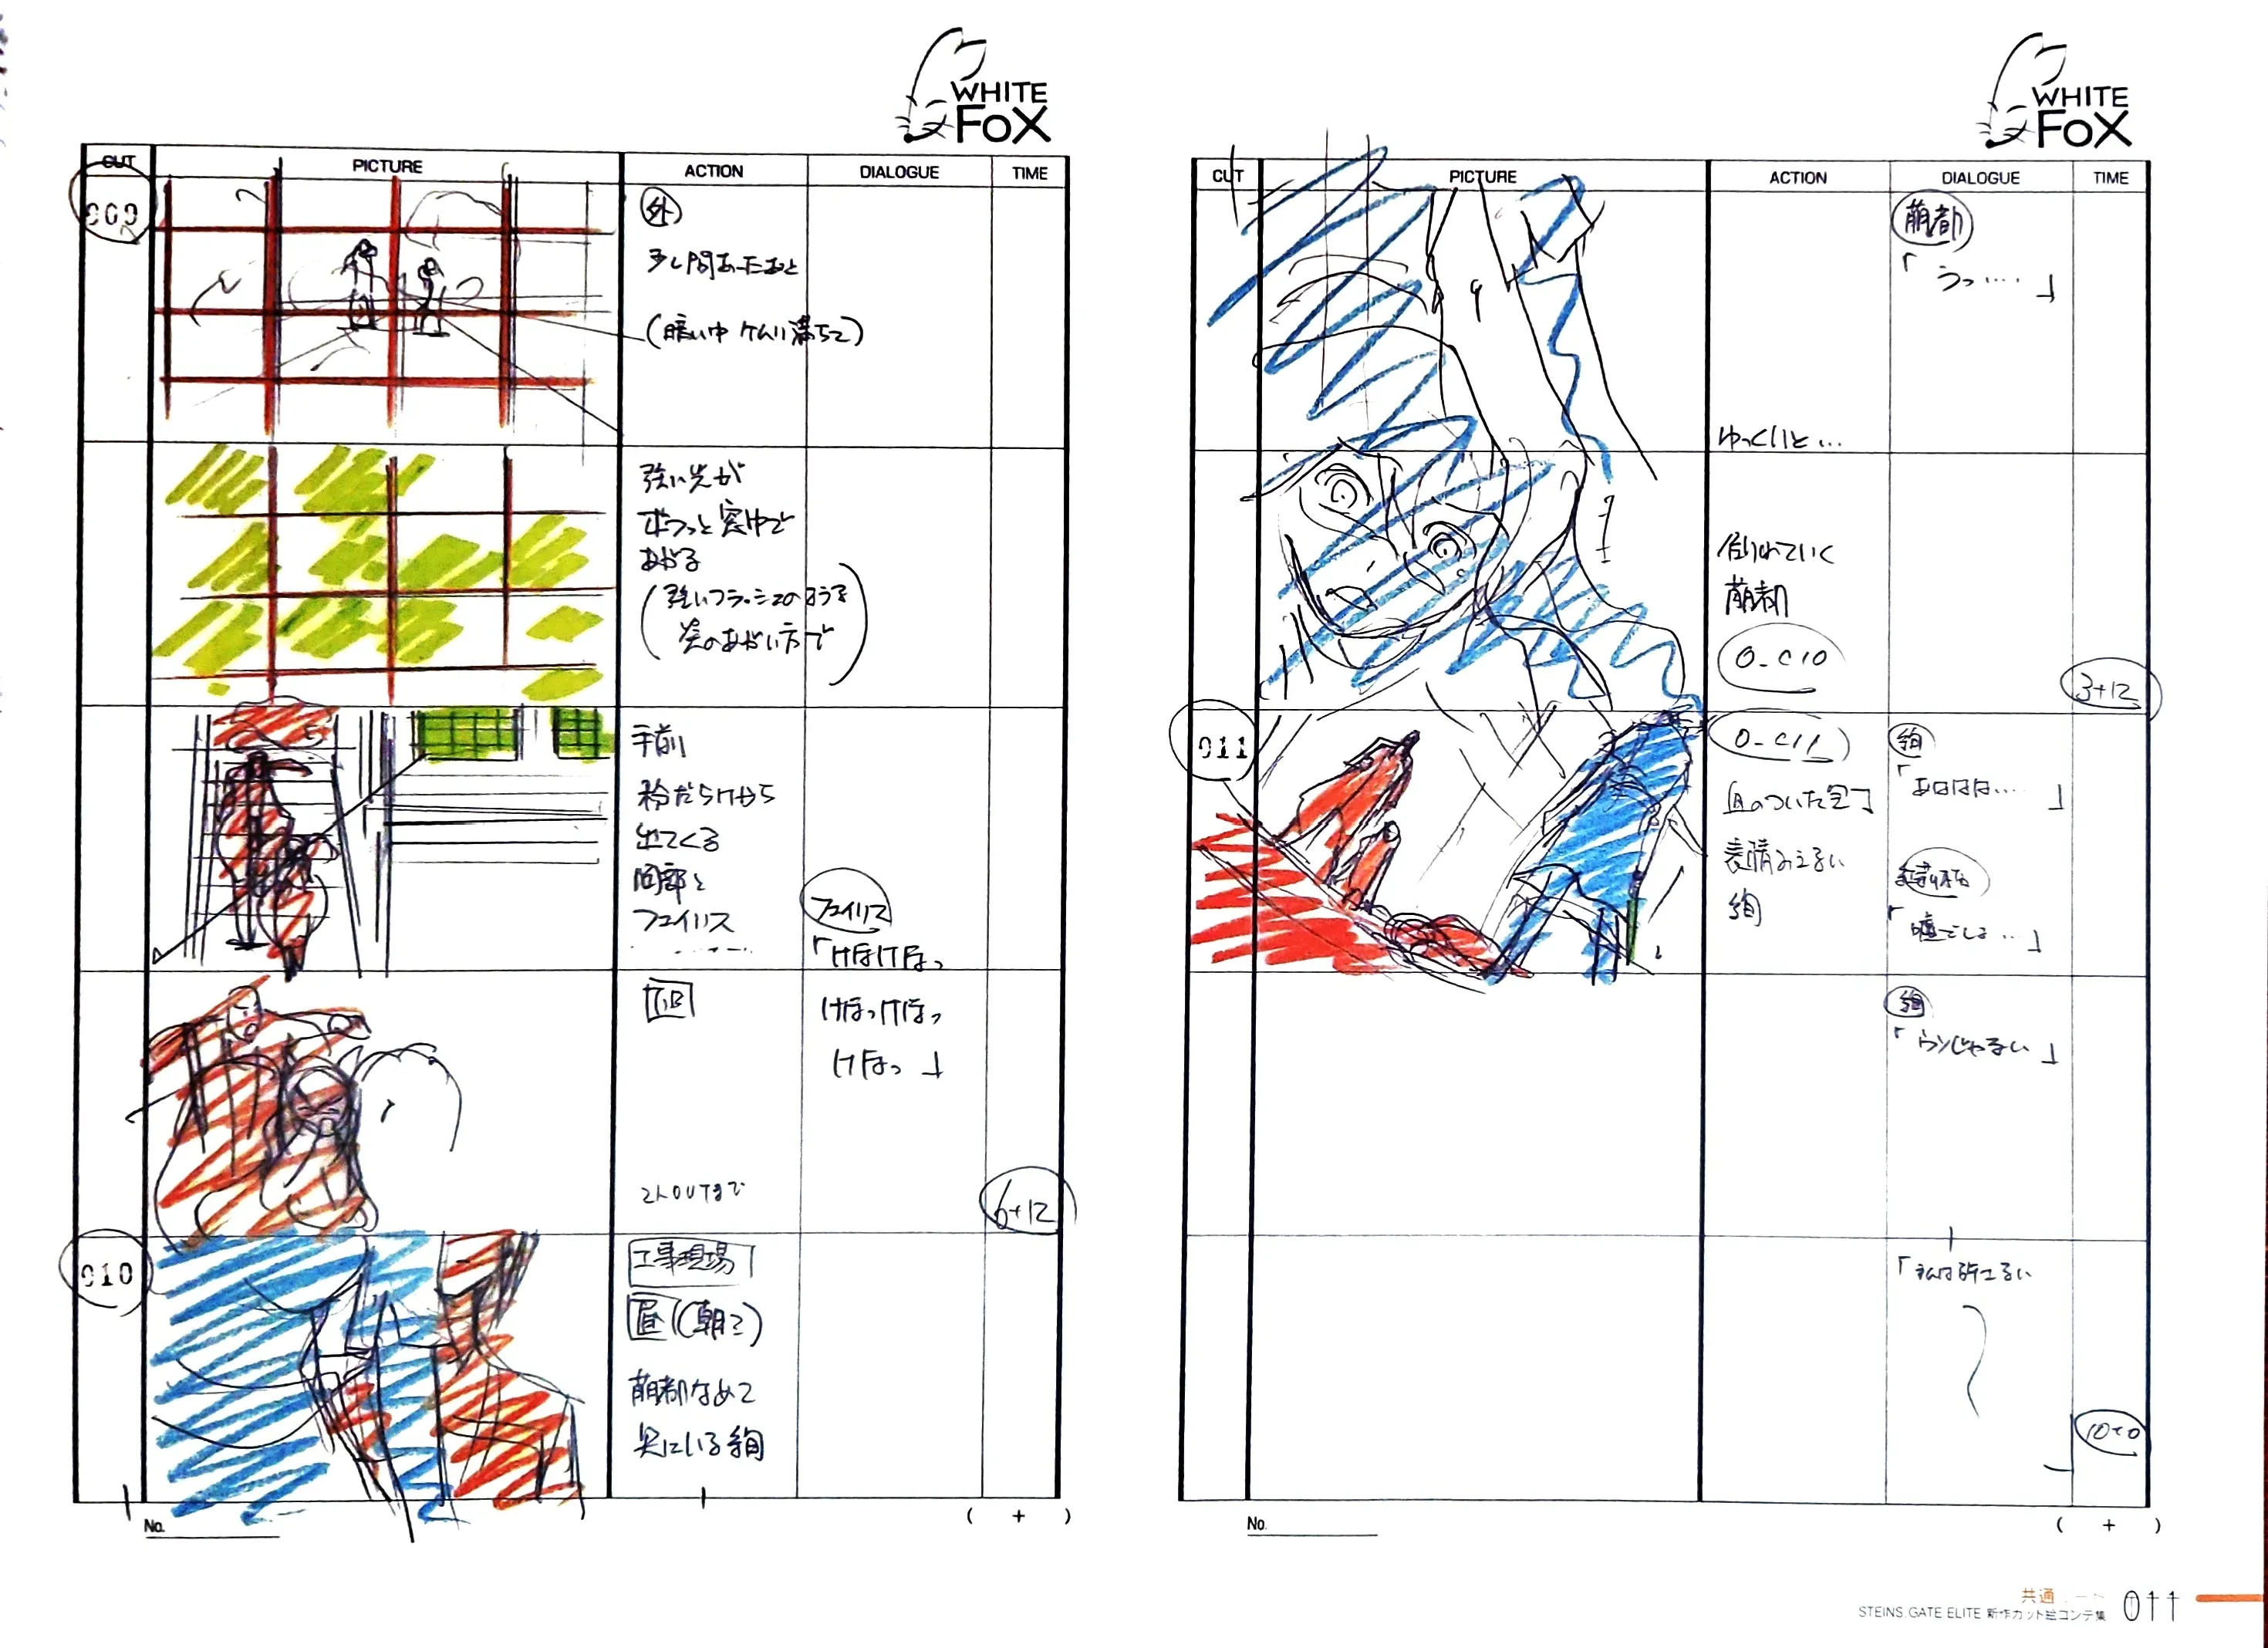 WHITE
FOX
CUT
PICTURE
ACTION
DIALOGUE
TIME
009
外
少し間あったあと
(暗い中 けんり満ちて)
強い光が
ボうっと窓中で
あがる
強いフラッシュのような
炎のあがり方で
手前
粉だらけから
出てくる
岡部と
フェイリス
フェイリス
「けほけほっ
けほっけほっ
けほっ」
OUTまで
6+12
010
工事現場
昼(朝?)
萌郁なめて
奥にいる綯
No.
( + )
WHITE
FOX
CUT
PICTURE
ACTION
DIALOGUE
TIME
萌郁
「うっ……」
ゆっくりと…
倒れていく
萌郁
O-C10
3+12
011
O-C11
血のついた包丁
表情みえない
綯
綯
「あははは……」
「嘘でしょ…」
綯
「ウソじゃない」
「私は許さない
」
10+0
No.
( + )
共通
STEINS;GATE ELITE 新作カット絵コンテ集
011